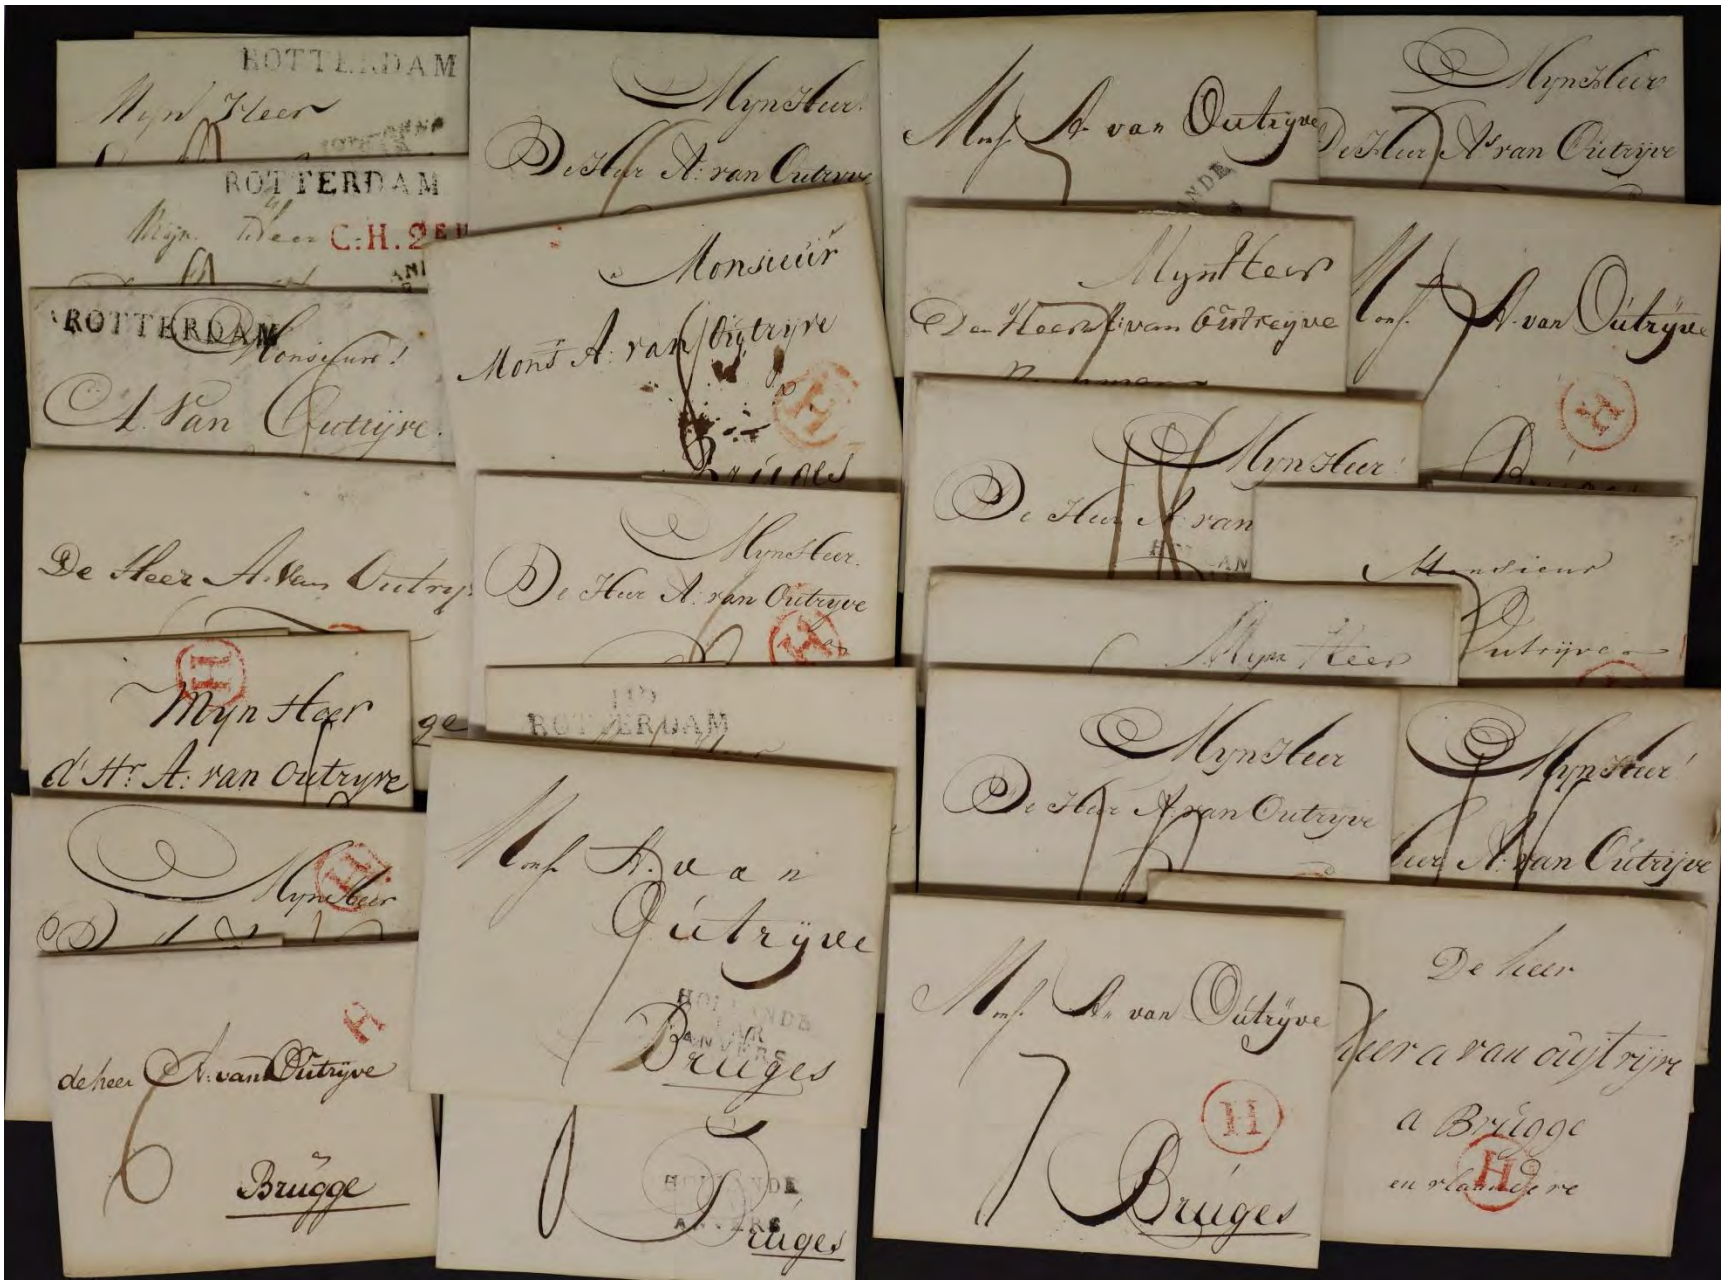 ROTTERDAM
Myn Heer
ROTTERDAM
Myn Heer
C.H.2
ROTTERDAM
Monsieur!
A. Van Outryve.
De Heer A. Van Outry
H
Myn Heer
d'Hr. A: van Outryve
ge
H
Myn Heer
H
de heer A. van Outryve
6
Brugge
Myn Heer.
De Heer A: van Outryve
Monsieur
Mons A: van Outryve
H
Bruges
Myn Heer.
De Heer A: van Outryve
H
ROTTERDAM
Mons. A. van
Outryve
HOLLANDE
PAR
ANVERS
Bruges
HOLLANDE
ANVERS
Bruges
Mons. A. van Outryve
7
ANDE
Myn Heer
Den Heer A: van Outreyve
Myn Heer!
De Heer A: van
Myn Heer
Myn Heer
De Heer A: van Outryve
Mons. A. van Outryve
7
H
Bruges
Myn Heer
De Heer As. van Outryve
Mons. A. van Outryve
H
Monsieur
Outryve
Myn Heer!
A. van Outryve
De heer
heer a van oujtrijve
a Brugge
en vlaandere
H